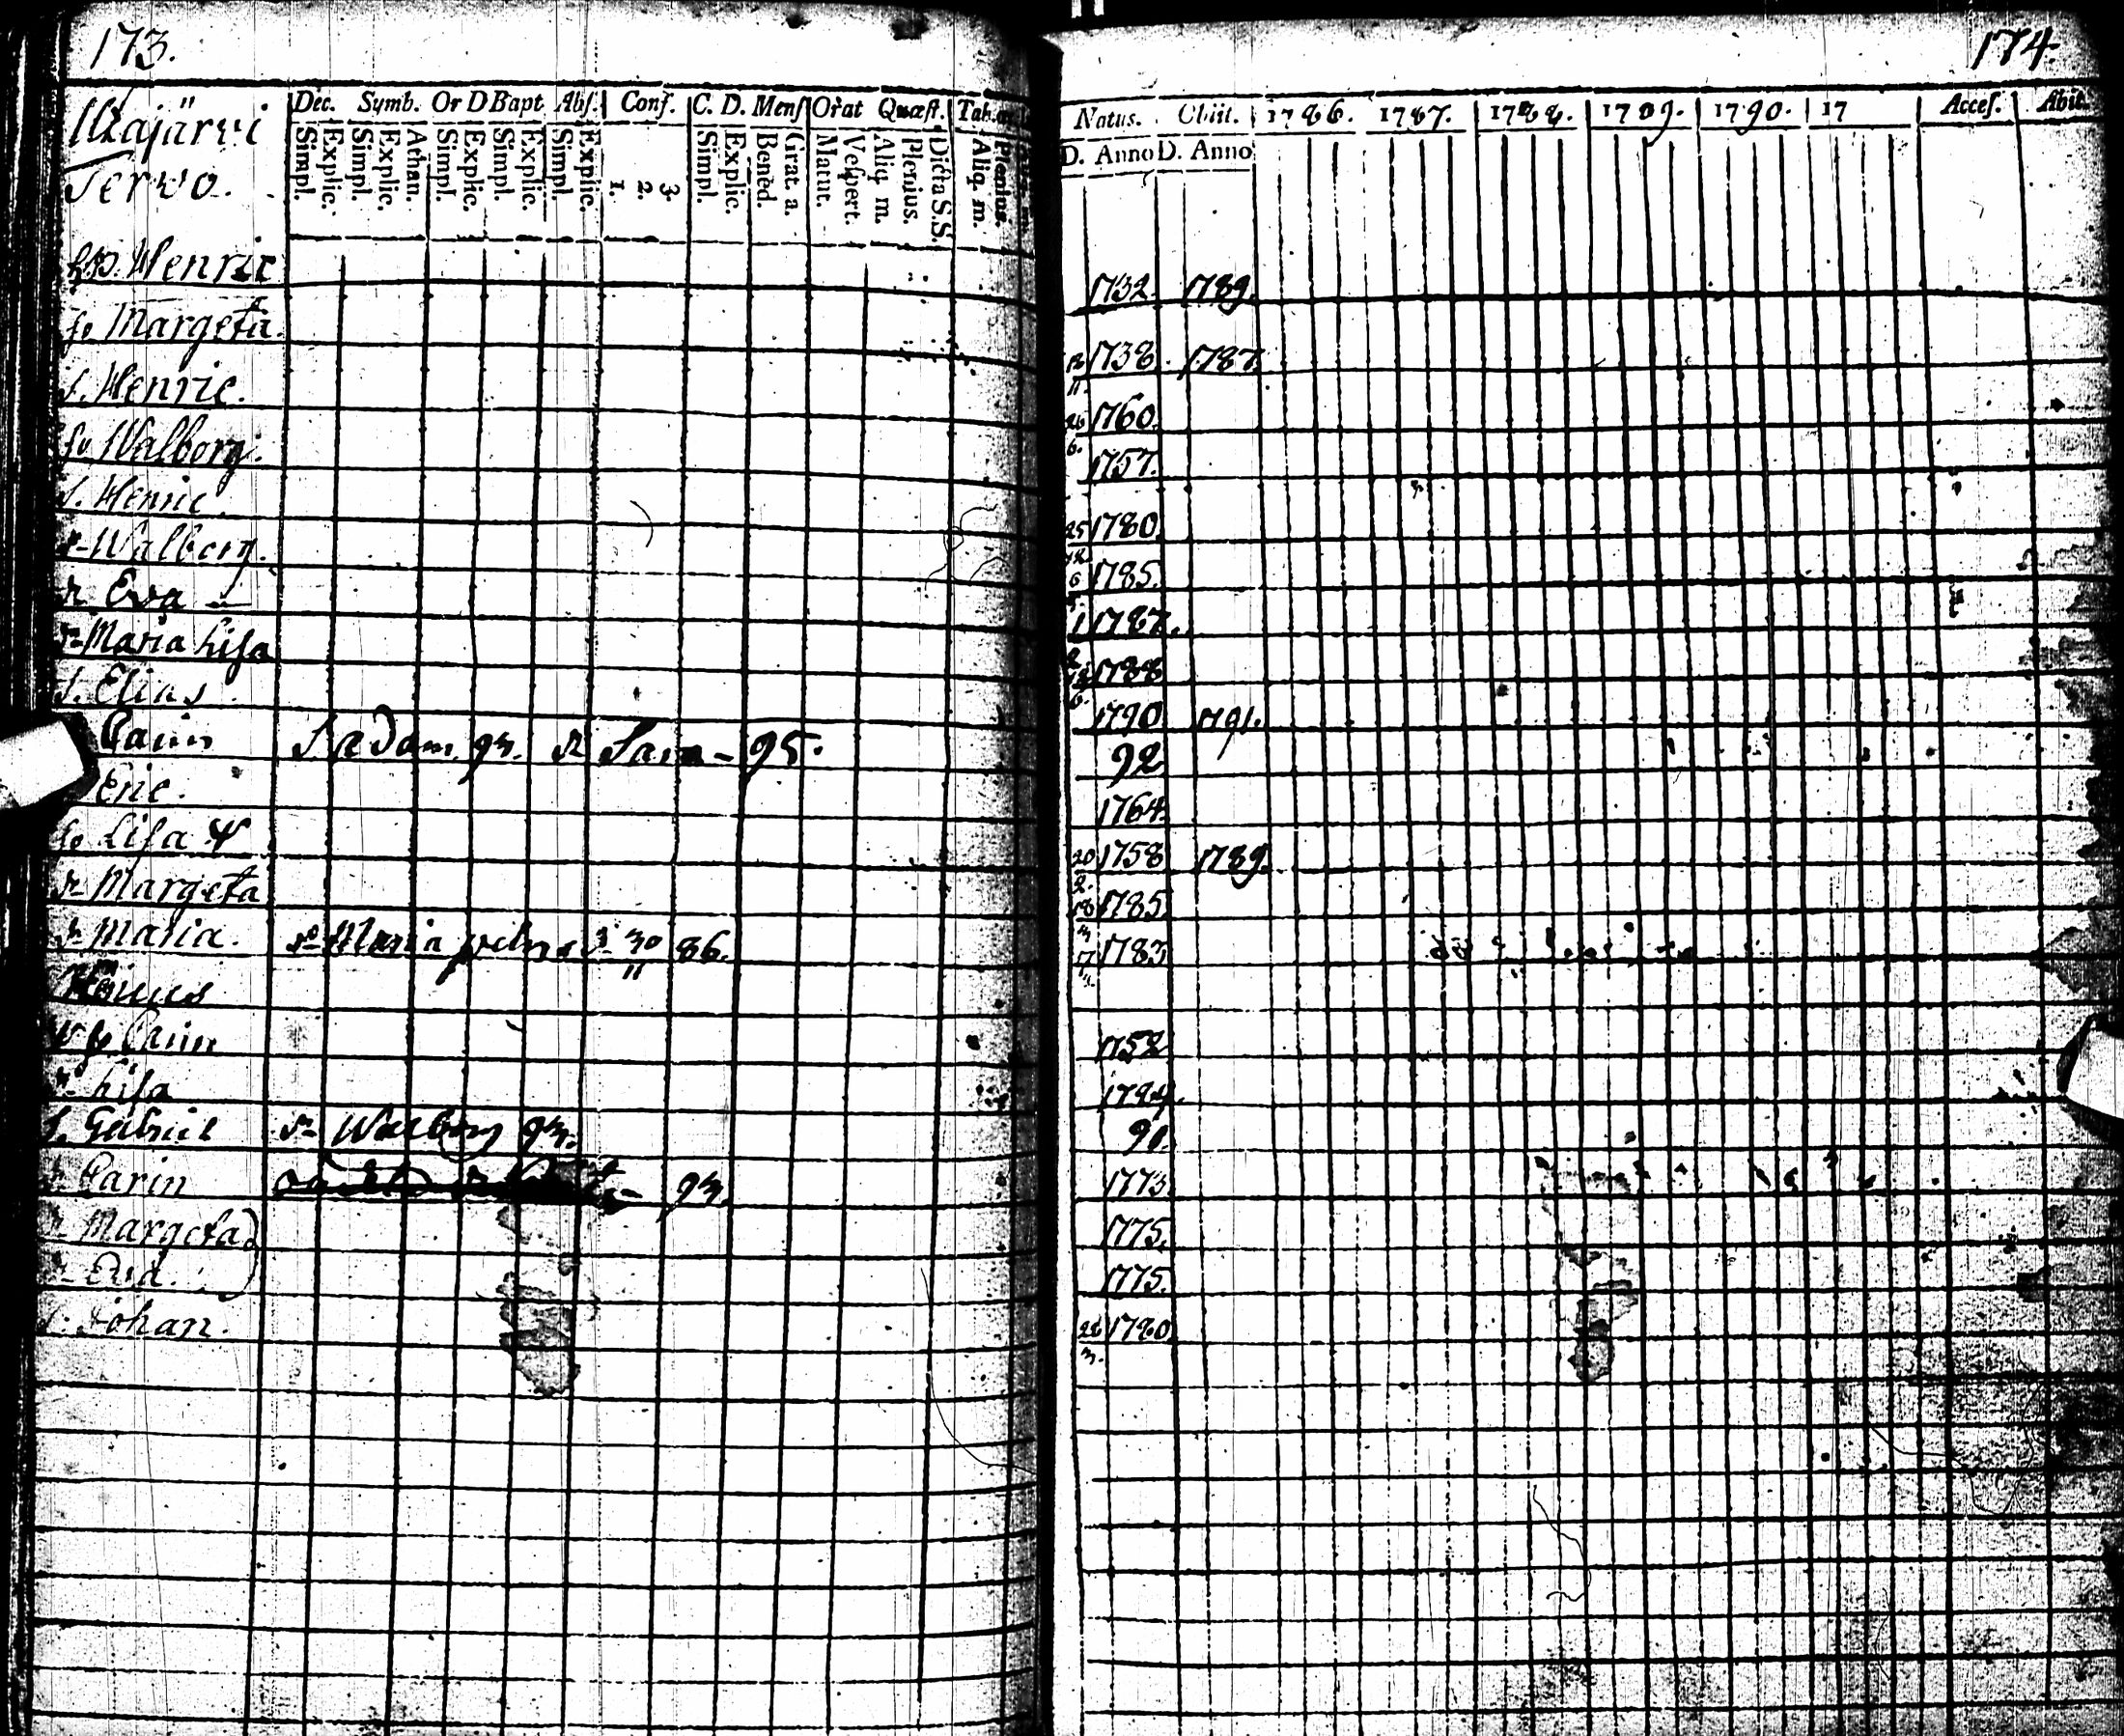 173.
Dec. Symb. Or D Bapt Abs. Conf. C. D. Mens Orat Quæst.
Simpl. Explic. Simpl. Explic. Athan. Simpl. Explic. Simpl. Explic. Simpl. Explic. 1. 2. 3. Simpl. Explic. Bened. Grat. a. Matut. Vespert. Aliq. m. Plenius. Dicta S.S. Aliq. m. Plenius.
Ukajärvi
Tervo.
Henric
Margeta.
s. Henric.
Walborg.
s. Henric.
Walborg.
Eva
Maria Lisa
s. Elias
Carin S. Adam 93. Sara - 95.
Eric.
Lisa
Margeta
Maria. Maria 30 86.
11
Carin
Lisa
s. Gabriel Walborg 93.
Carin 93.
Margeta
Eva.
Johan.
174.
Natus. Obiit. 1786. 1787. 1788. 1789. 1790. 17 Acces. Abit.
D. Anno D. Anno
1732. 1789.
1738. 1787.
11.
26 1760.
6. 1757.
25 1780
1785.
1 1787.
1788
1790 1791.
92
1764.
20 1758 1789.
2.
18 1785.
17 1783
1752
1784.
91.
1773
1775.
1775.
28 1780
3.